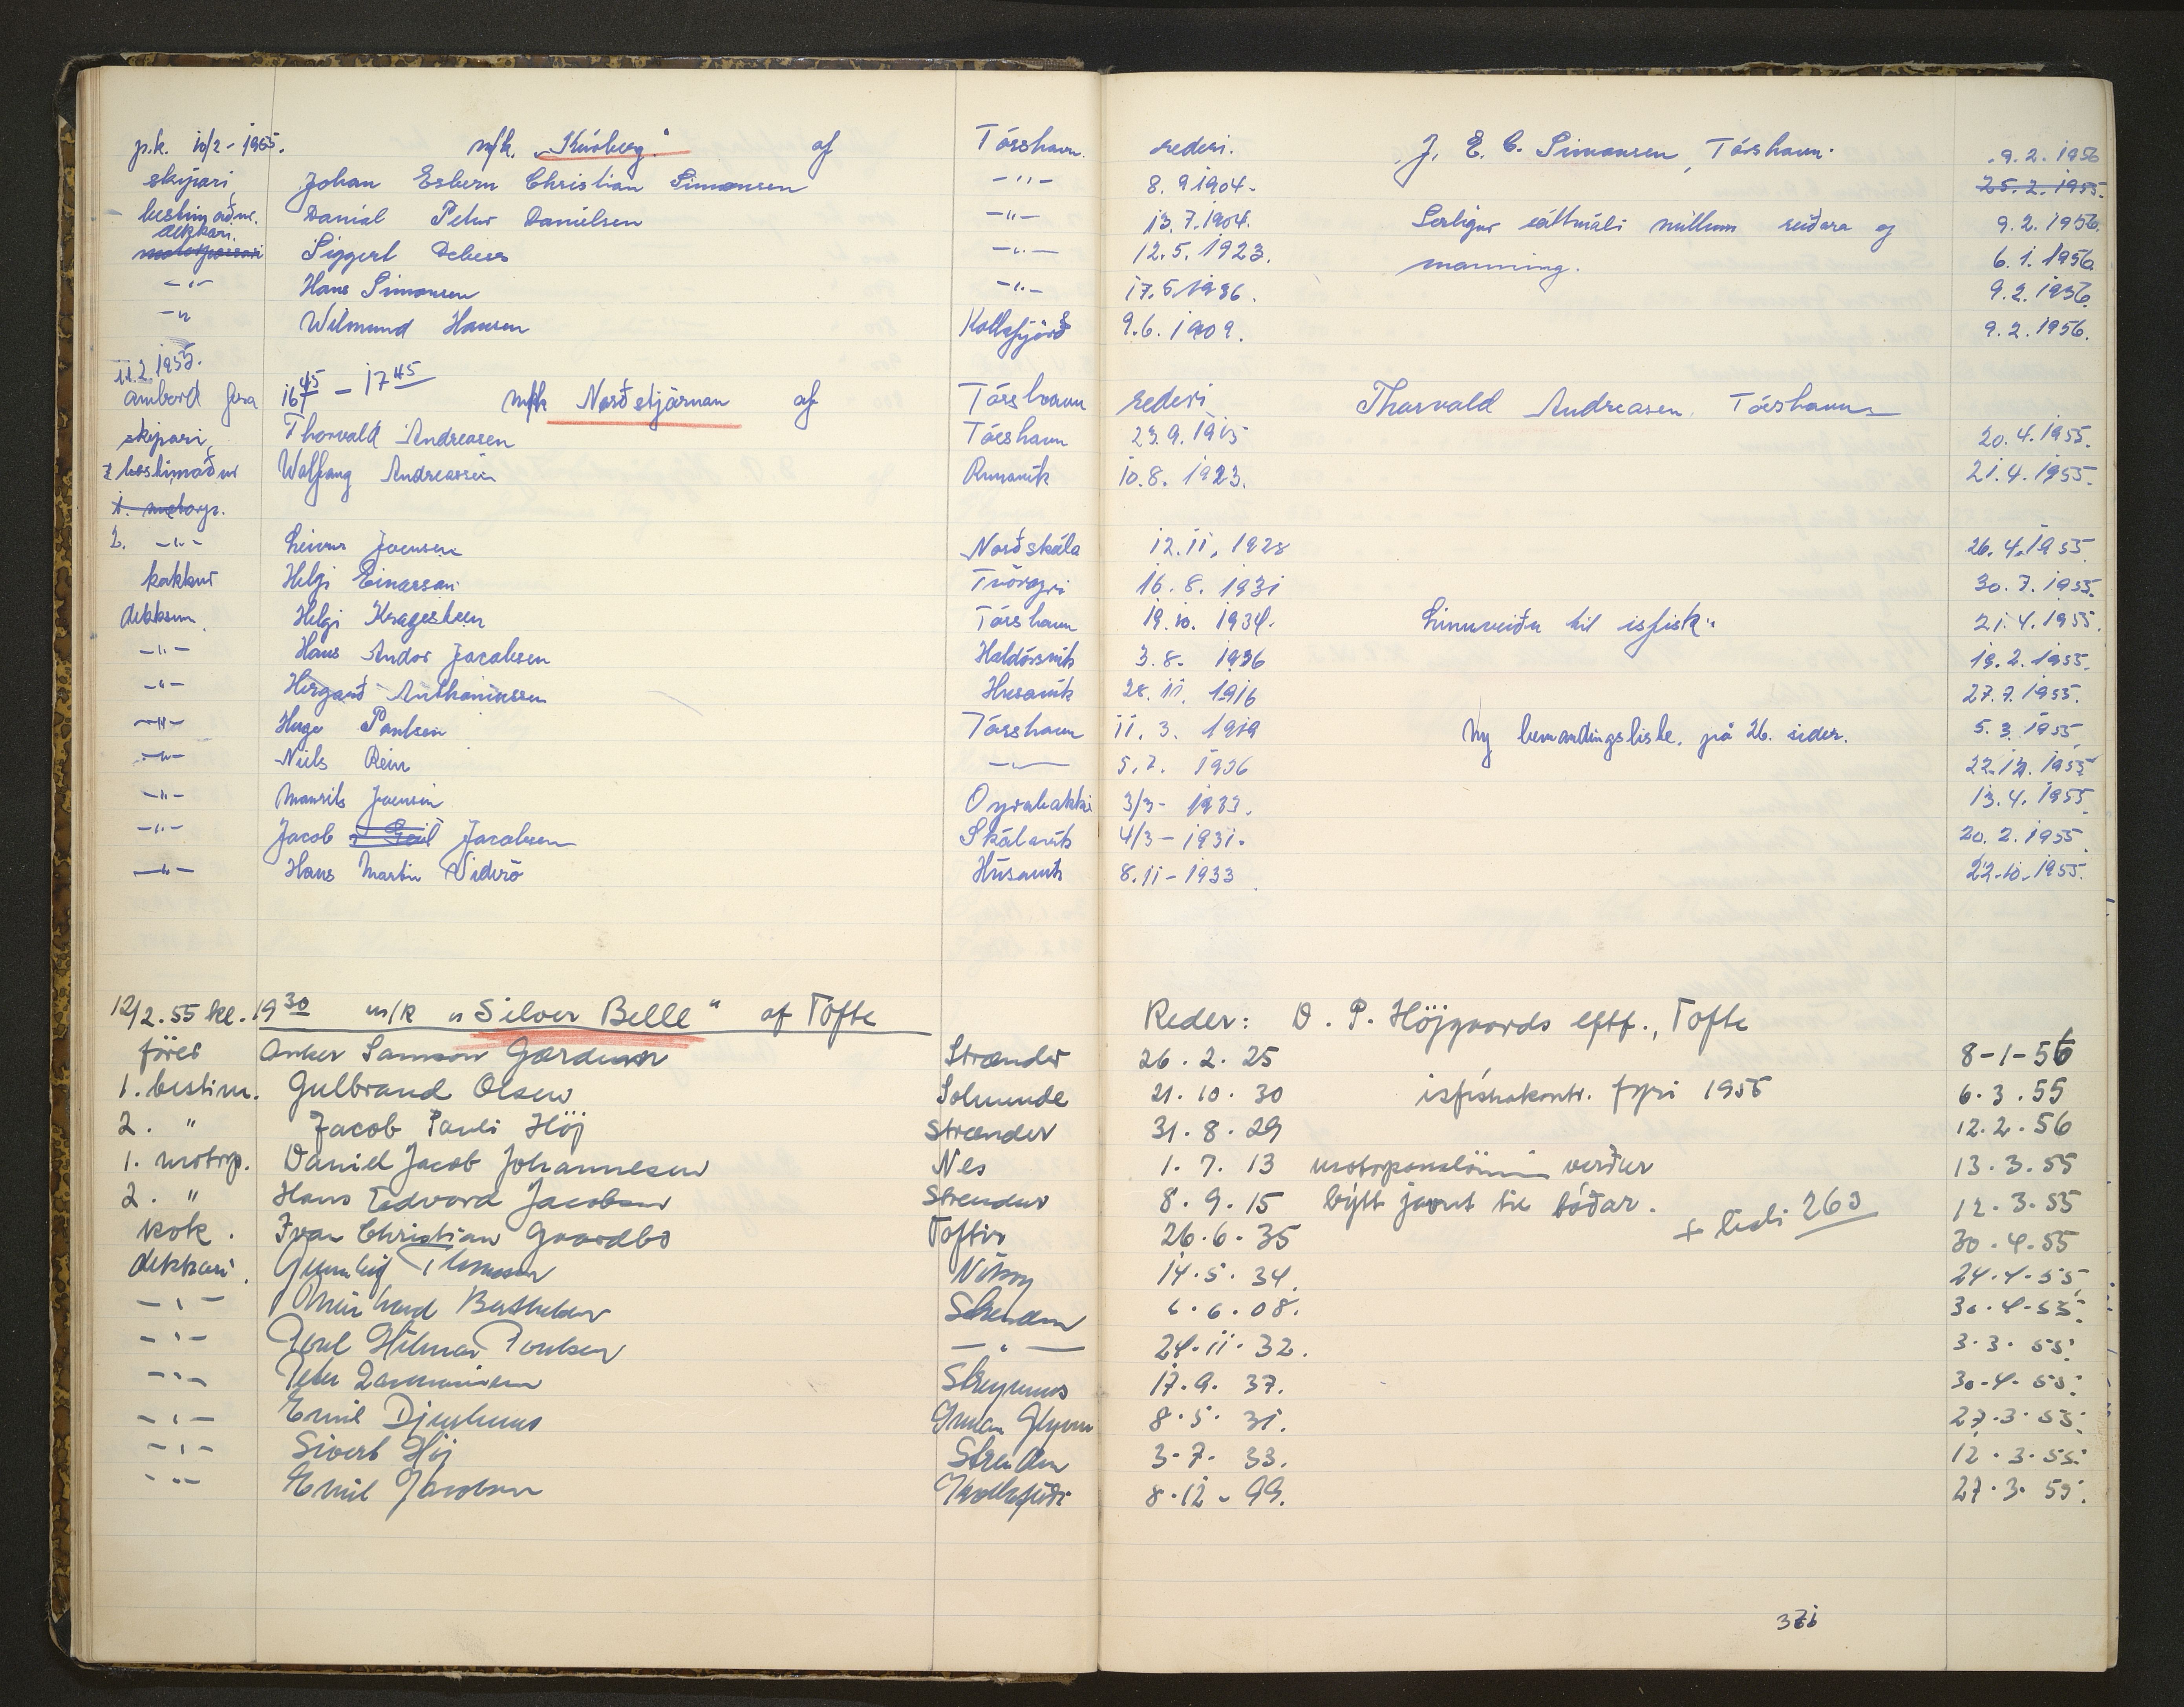 p.k. 10/2 - 1955. m/k. "Kúvberg." af Tórshavn. rederi. J. E. C. Simonsen, Tórshavn. 9. 2. 1956
skipari, Johan Esbern Christian Simonsen -"- 8. 9 1904. 25. 2. 1955.
bestimaður. Daniel Petur Danielsen -"- 13. 7. 1904. Serligur sáttmáli millum reiðara og 9. 2. 1956.
dekkari.
motorpassari Siggert Debess -"- 12. 5. 1923. manning. 6. 1. 1956.
-"- Hans Simonsen -"- 17. 5. 1936. 9. 2. 1956.
-" Wilmund Hansen Kollefjørð 9. 6. 1909. 9. 2. 1956.
11.2.1955.
umbord fra 16 45 - 17 45 m/k Norðstjørnan af Tórshavn rederi Thorvald Andreasen, Tórshavn
skipari, Thorvald Andreasen Tórshavn 23. 9. 1915 20. 4. 1955.
1 bestimaður Wolfgang Andreassen Runavík 10. 8. 1923. 21. 4. 1955.
1. motorp.
2. -"- Leivur Joensen Norðskála 12. 11. 1928 26. 4. 1955
kokkur Helgi Einarsson Tvöroyri 16. 8. 1931 30. 7. 1955.
dekksm. Helgi Kragesteen Tórshavn 19. 10. 1934. Línuveiðu til isfisk" 21. 4. 1955.
-"- Hans Andor Jacobsen Haldórsvík 3. 8. 1936 19. 2. 1955.
-"- Hergarð Anthoniussen Husavík 28. 11. 1916 27. 7. 1955.
-"- Hugo Poulsen Tórshavn 11. 3. 1919 Ny bemandingsliste. på 26. sider. 5. 3. 1955
-"- Niels Rein -"- 5. 7. 1936 22. 12. 1955
-"- Maurits Joensen Oyrabakki 3/3 - 1933. 13. 4. 1955
-"- Jacob Jacobsen Skálavík 4/3 - 1931. 20. 2. 1955.
-"- Hans Martin Viderö Húsavík 8. 11 - 1933 22. 10. 1955.
12/2. 55 kl. 19 30 m/k "Silver Belle" af Tofte Reder: O. P. Höjgaards eftf., Tofte
förer Anker Samson Gærdum Strænder 26. 2. 25 8-1-56
1. bestim. Gulbrand Olsen Solmunde 21. 10. 30 isfiskakontr. fyri 1955 6. 3. 55
2. " Jacob Pauli Höj Strænder 31. 8. 29 12. 2. 56
1. motorp. Daniel Jacob Johannesen Nes 1. 7. 13 motorpasslönin verður 13. 3. 55
2. " Hans Edvard Jacobsen Strendur 8. 9. 15 býtt javnt til báðar. 12. 3. 55
kok. Ivan Christian Gaardbo Toftir 26. 6. 35 + 263 30. 4. 55
dekkari. Gunnleig Thomsen Nólsoy 14. 5. 34. 24. 4. 55
-"- Meinhard Berthelsen Strendum 6. 6. 08. 30. 4. 55.
-"- Poul Hilmar Poulsen -"- 24. 11. 32. 3. 3. 55.
-"- Peter Streymnes 17. 9. 37. 30. 4. 55.
-"- Emil Djurhuus 8. 5. 31. 27. 3. 55.
-"- Sivert Höj Strendum 3. 7. 33. 12. 3. 55.
-"- Emil Jacobsen 8. 12 - 99. 27. 3. 55.